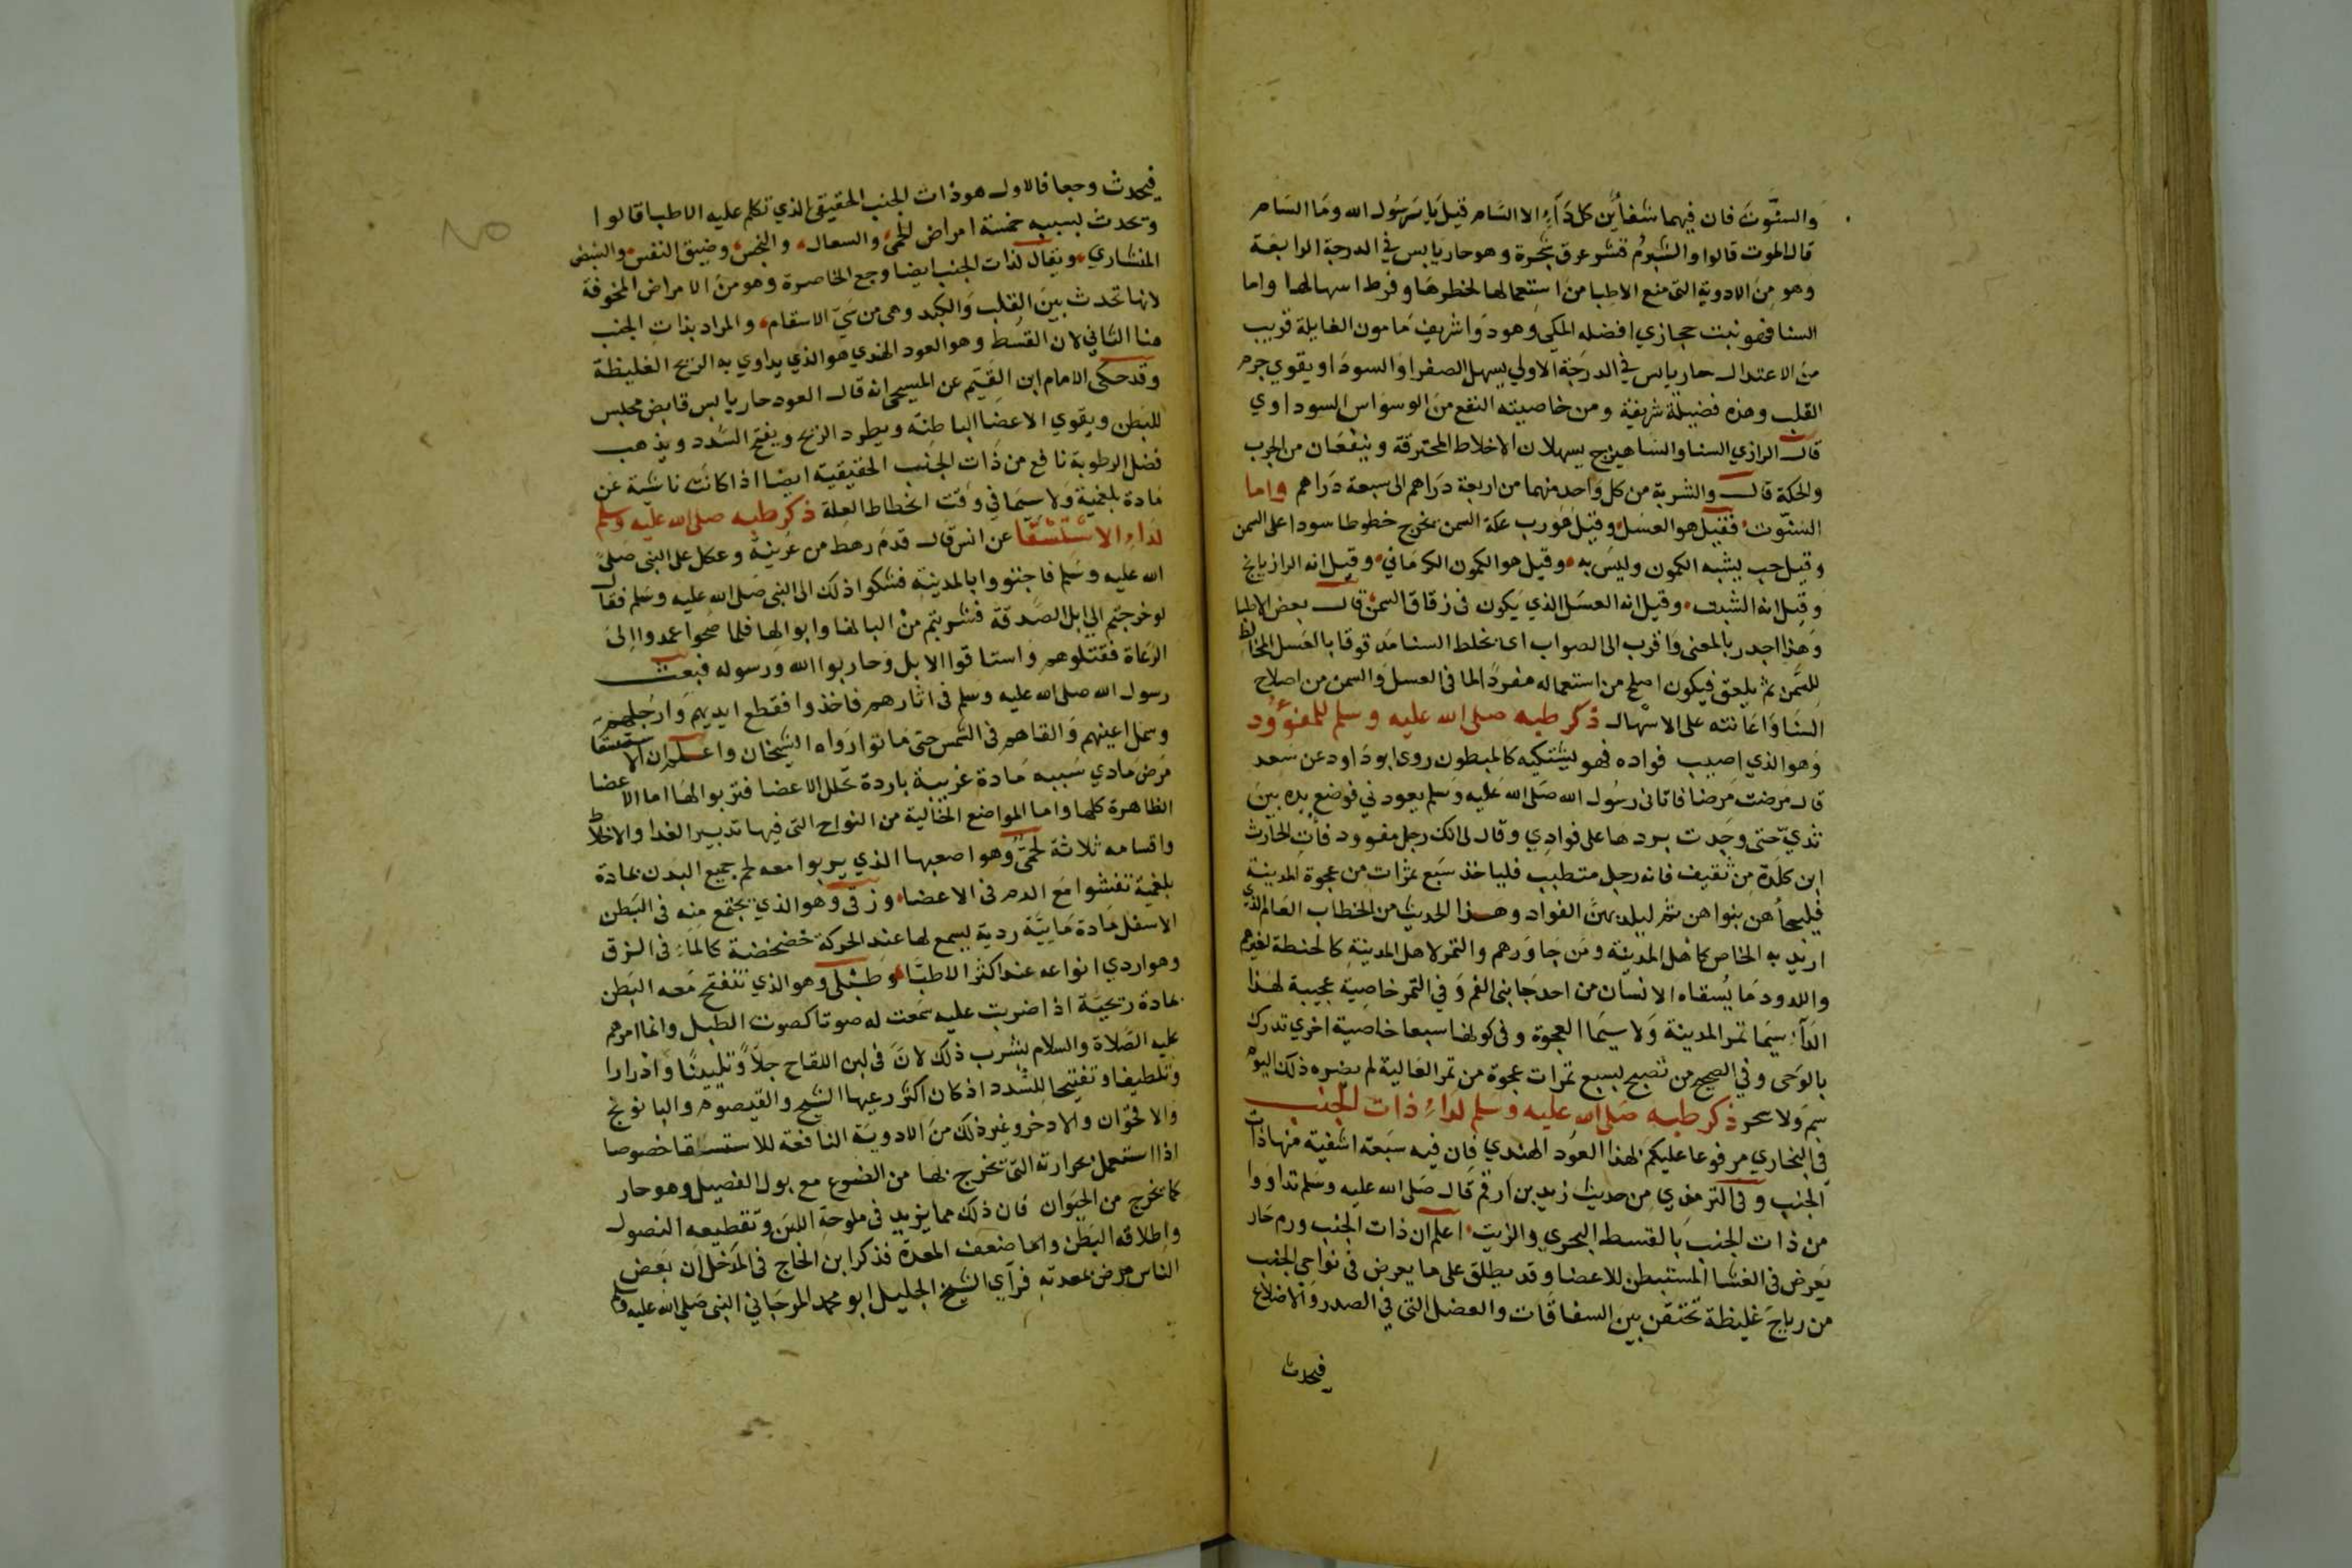 والسنّوت فان فيهما شفاً من كل دَآءٍ الا السَام قيل يا رسول الله وما السَام
قال الموت قالوا والشبرُم قشر عرق شجرة وهو حار يابس في الدرجة الرابعة
وهو من الادوية التي منع الاطبا من استعمالها لخطرها وفرط اسهالها واما
السنا فهو نبت حجازي افضله المكي وهو دَوا شريف مامون الغايلة قريب
من الاعتدال حار يابس في الدرجة الاولي يسهل الصفرا والسودا ويقوي جرم
القلب وهذه فضيلة شريفة ومن خاصيته النفع من الوسواس السوداوي
قال الرازي السنا والشاهيرج يسهلان الاخلاط المحترقة وينفعان من الجرب
والحكة قال والشربة من كل واحد منهما من اربعة دراهم الى سبعة دراهم واما
السَنّوت فقيل هو العسل وقيل هو رب عكة السمن يخرج خطوطا سودا على السمن
وقيل حب يشبه الكمون وليس به وقيل هو الكمون الكرماني وقيل انه الرازيانج
وقيل انه الشبت وقيل انه العسل الذي يكون في زقاق السمن قال بعض الاطبا
وهذا اجدر بالمعنى واقرب الى الصواب اى يخلط السنا مدقوقا بالعسل المخالط
للسَمن ثم يلعق فيكون اصلح من استعماله مفردًا لما في العسل والسمن من اصلاح
السَنا واعانته على الاسهال ذكر طبه صلى الله عليه وسلم للمفوءود
وهو الذي اصيب فواده فهو يشتكيه كالمبطون روى ابو داود عن سعد
قال مرضت مرضا فاتانى رسول الله صلى الله عليه وسلم يعودني فوضع يده بين
ثدييّ حتى وجدت بردها على فوادِي وقال لى انك رجل مفوود فأت الحارث
ابن كلَدة من ثقيف فانه رجل متطبب فلياخذ سبع تمرات من عجوة المدينة
فليجأهن بنواهن ثم ليلدك بهن الفواد وهذا الحديث من الخطاب العام الذي
اريد به الخاص كاهل المدينة ومن جاورهم والتمر لاهل المدينة كالحنطة لغيرهم
واللدود ما يُسقاه الانسان من احد جانبى الفم وَفي التمر خاصية عجيبة لهذا
الدَآء سيما تمر المدينة ولا سيما العجوة وفى كونها سبعا خاصية اخري تدرك
بالوحى وفي الصحيح من تصبح بسبع تمرات عجوة من تمر العالية لم يضره ذلك اليوم
سم ولا سحر ذكر طبه صَلى الله عليه وسَلم لداءِ ذات الجنب
في البخاري مرفوعا عليكم بهذا العود الهندي فان فيه سبعة اشفية منها ذات
الجنب وفى الترمذي من حديث زيد بن ارقم قال صلى الله عليه وسلم تداووا
من ذات الجنب بالقسط البحري والزيت اعلم ان ذات الجنب ورم حار
يعرض فى الغشا المستبطن للاعضا وقد يطلق على ما يعرض فى نواحى الجنب
من رياح غليظة تحتقن بين السفاقات والعضل التي في الصدر والاضلاع
فيحدث
فيحدث وجعا فالاول هو ذات الجنب الحقيقى الذي تكلم عليه الاطبا قالوا
وتحدث بسببه خمسة امراض الحمى والسعال والنخس وضيق النفس والنبض
المنشاري ويقال لذات الجنب ايضا وجع الخاصرة وهو من الامراض المخوفة
لانها تحدث بين القلب والكبد وهى من سَيّ الاسقام والمراد بذات الجنب
هنا الثاني لان القسط وهو العود الهندي هو الذي يداوي به الريح الغليظة
وقد حكى الامام ابن القيم عن المسيحى انه قال العود حار يابس قابض محبس
للبطن ويقوي الاعضا الباطنة ويطرد الريح ويفتح السَدد ويذهب
فضل الرطوبة نافع من ذات الجنب الحقيقية ايضا اذا كانت ناشئة عن
مادة بلغمية ولا سيما في وقت انحطاط العلة ذكر طبه صلى الله عليه وسلم
لداءِ الاستسقا عن انس قال قدم رهط من عرينة وعكل على النبى صلى
الله عليه وسلم فاجتووا بالمدينة فشكوا ذلك الى النبى صلى الله عليه وسلم فقال
لو خرجتم الي ابل الصدقة فشربتم من البانها وابوالها فلما صحوا عمدوا الى
الرعاة فقتلوهم واستاقوا الابل وحاربوا الله ورسوله فبعث
رسول الله صلى الله عليه وسلم فى اثارهم فاخذوا فقطع ايديهم وارجلهم
وسمل اعينهم والقاهم فى الشمس حتى ماتوا رواه الشيخان واعلم ان الاستسقا
مرض مادي سببه مادة غريبة باردة تخلل الاعضا فتربو الها اما الاعضا
الظاهرة كلها واما المواضع الخالية من النواح التى فيها تدبير الغدا والاخلاط
واقسامه ثلاثة لحمىّ وهو اصعبها الذي يربوا معه لحم جميع البدن بمادة
بلغمية تفشوا مع الدم فى الاعضا وزقى وهو الذي يجتمع منه فى البطن
الاسفل مادة مايية ردية يسمع لها عند الحركة خضخضة كالماءِ فى الزق
وهو اردي انواعه عند اكثر الاطبا وطبلى وهو الذي تنتفخ معه البطن
بمادة ريحية اذا ضربت عليه سمعت له صوتا كصوت الطبل وانما امرهم
عليه الصلاة والسلام بشرب ذلك لان فى لبن اللقاح جلآ وتليينًا وادرارا
وتلطيفا وتفتيحا للسُدد اذ كان اكثر رعيها الشيح والقيصوم والبابونج
والاقحوان والادخر وغير ذلك من الادوية النافعة للاستسقا خصوصا
اذا استعمل بحرارته التى تخرج بها من الضرع مع بول الفصيل وهو حار
كما يخرج من الحيوان فان ذلك مما يزيد فى ملوحة اللبن وتقطيعه الفضول
واطلاقه البطن واما ضعف المعدة فذكر ابن الحاج فى المدخل ان بعض
الناس مرض بمعدته فرآى الشيخ الجليل ابو محمد المرجانى النبى صلى الله عليه وسلم